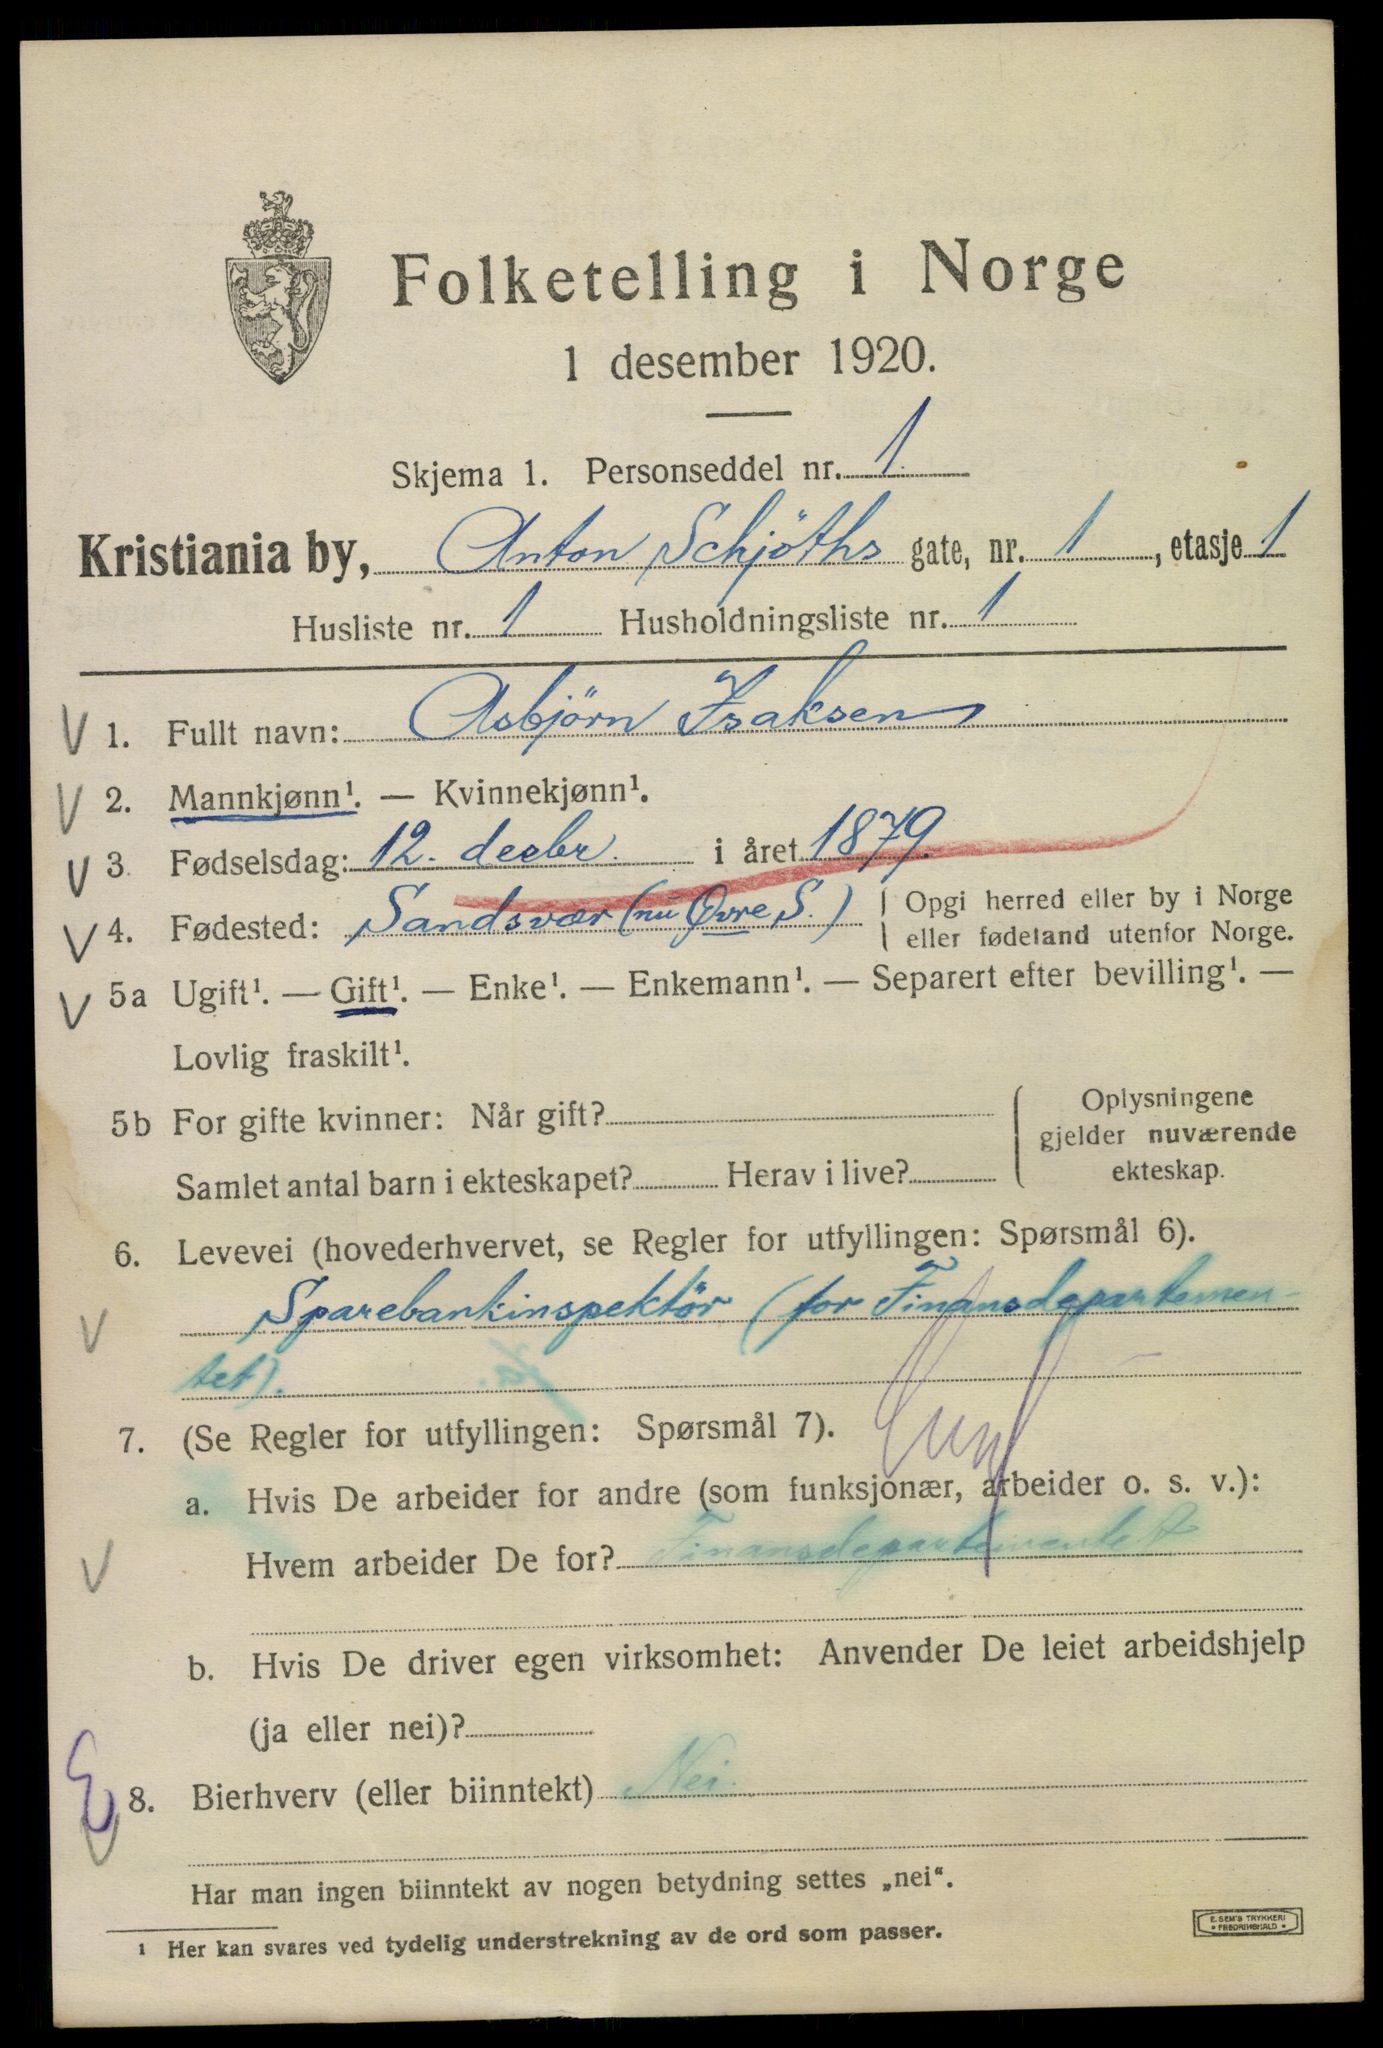 Folketelling i Norge
1 desember 1920.
Skjema 1. Personseddel nr. 1
Kristiania by, Anton Schjöths gate, nr. 1, etasje 1
Husliste nr. 1 Husholdningsliste nr. 1
V 1. Fullt navn: Asbjörn Isaksen
V 2. Mannkjønn¹. — Kvinnekjønn¹.
V 3 Fødselsdag: 12. decbr. i året 1879.
V 4. Fødested: Sandsvær (nu Øvre S.) Opgi herred eller by i Norge
eller fødeland utenfor Norge.
V 5a Ugift¹. — Gift¹. — Enke¹. — Enkemann¹. — Separert efter bevilling¹. —
Lovlig fraskilt¹.
5b For gifte kvinner: Når gift? Oplysningene
gjelder nuværende
Samlet antal barn i ekteskapet? Herav i live? ekteskap.
6. Levevei (hovederhvervet, se Regler for utfyllingen: Spørsmål 6).
V Sparebankinspektör (for Finansdepartemen-
tet).
7. (Se Regler for utfyllingen: Spørsmål 7).
a. Hvis De arbeider for andre (som funksjonær, arbeider o. s. v.):
V Hvem arbeider De for? Finansdepartementet
b. Hvis De driver egen virksomhet: Anvender De leiet arbeidshjelp
(ja eller nei)?
V 8. Bierhverv (eller biinntekt) Nei.
Har man ingen biinntekt av nogen betydning settes „nei“.
¹ Her kan svares ved tydelig understrekning av de ord som passer.
E. SEM'S TRYKKERI
• FREDRIKSHALD •